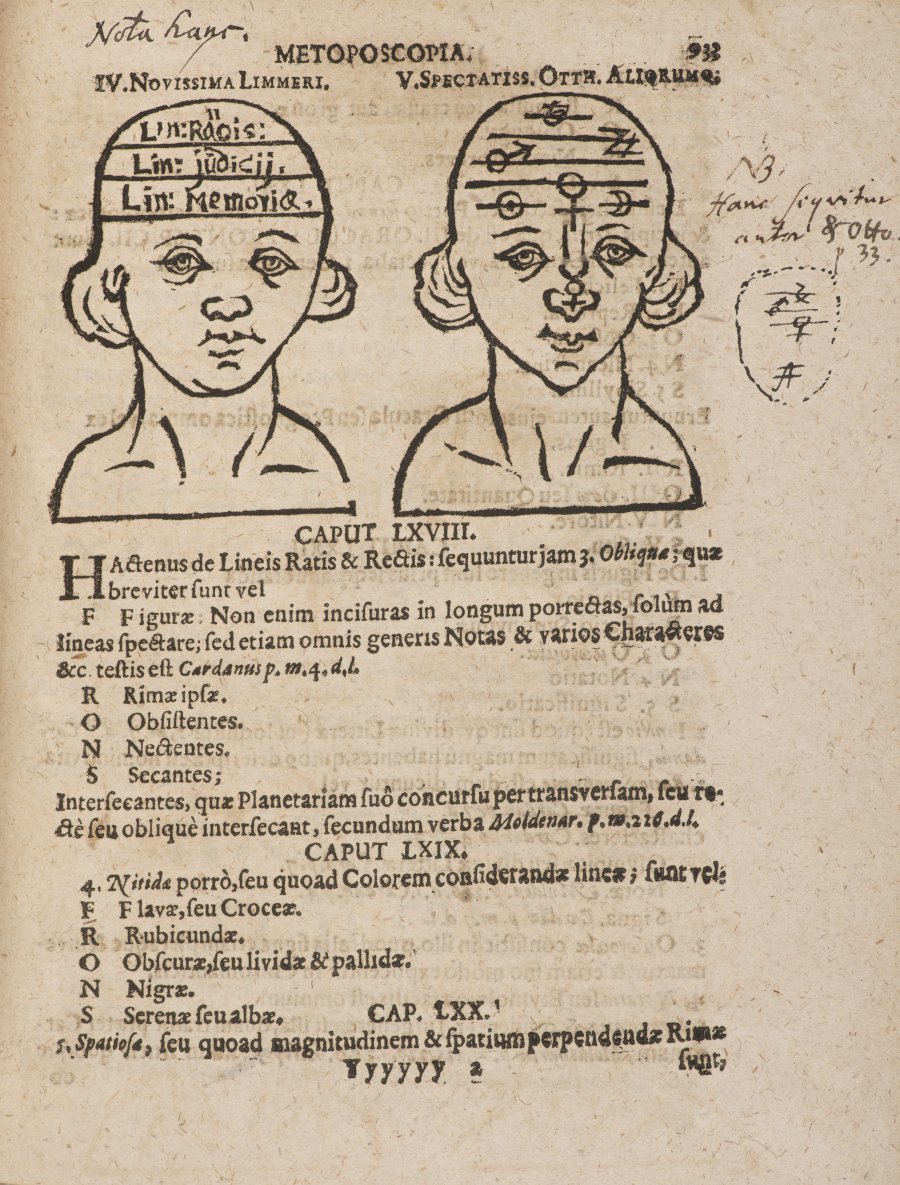 Nota hanc.
METOPOSCOPIA. 933
IV. NOVISSIMA LIMMERI. V. SPECTATISS. OTTH. ALIORUMQ;
Lin: Rãois:
Lin: jũdicij.
Lin: Memoriæ.
NB.
Hanc sequitur
autor & Otto
33.
CAPUT LXVIII.
HActenus de Lineis Ratis & Rectis: sequuntur jam 3. Obliquæ; quæ
breviter sunt vel
F Figuræ: Non enim incisuras in longum porrectas, solùm ad
lineas spectare; sed etiam omnis generis Notas & varios Characteres
&c. testis est Cardanus p. m. 4. d. l.
R Rimæ ipsæ.
O Obsistentes.
N Nectentes.
S Secantes;
Intersecantes, quæ Planetariam suô concursu per transversam, seu re-
ctè seu obliquè intersecant, secundum verba Moldenar. p. m. 226. d. l.
CAPUT LXIX.
4. Nitidæ porrò, seu quoad Colorem considerandæ lineæ; sunt vel:
F Flavæ, seu Croceæ.
R Rubicundæ.
O Obscuræ, seu lividæ & pallidæ.
N Nigræ.
S Serenæ seu albæ. CAP. LXX.
5. Spatiosæ, seu quoad magnitudinem & spatium perpendendæ Rimæ
Yyyyyy 2 sunt,